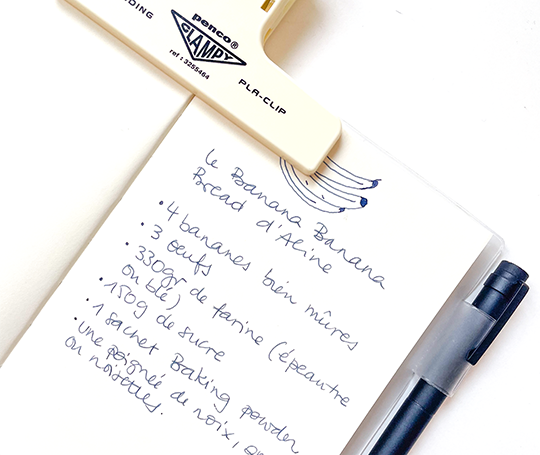 DING
penco®
CLAMPY
ref : 3255464
PLA-CLIP
le Banana Banana
Bread d'Aline
• 4 bananes bien mûres
• 3 oeufs
• 330gr de farine (épeautre
ou blé)
• 150g de sucre
• 1 sachet Baking powder
• une poignée de noix,
ou noisettes.